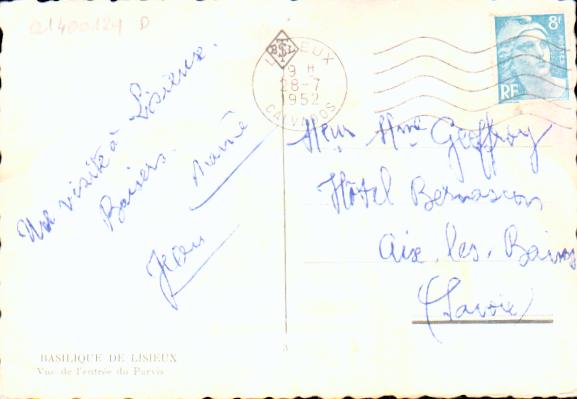 01400124 D
Une visite à Lisieux.
Baisers.
Mamé
Jean
BASILIQUE DE LISIEUX
Vue de l'entrée du Parvis
3
LISIEUX
9 H
28-7
1952
CALVADOS
8F
RF
Meur Mme Geoffroy
Hôtel Bernascon
Aix. les. Bains
(Savoie)